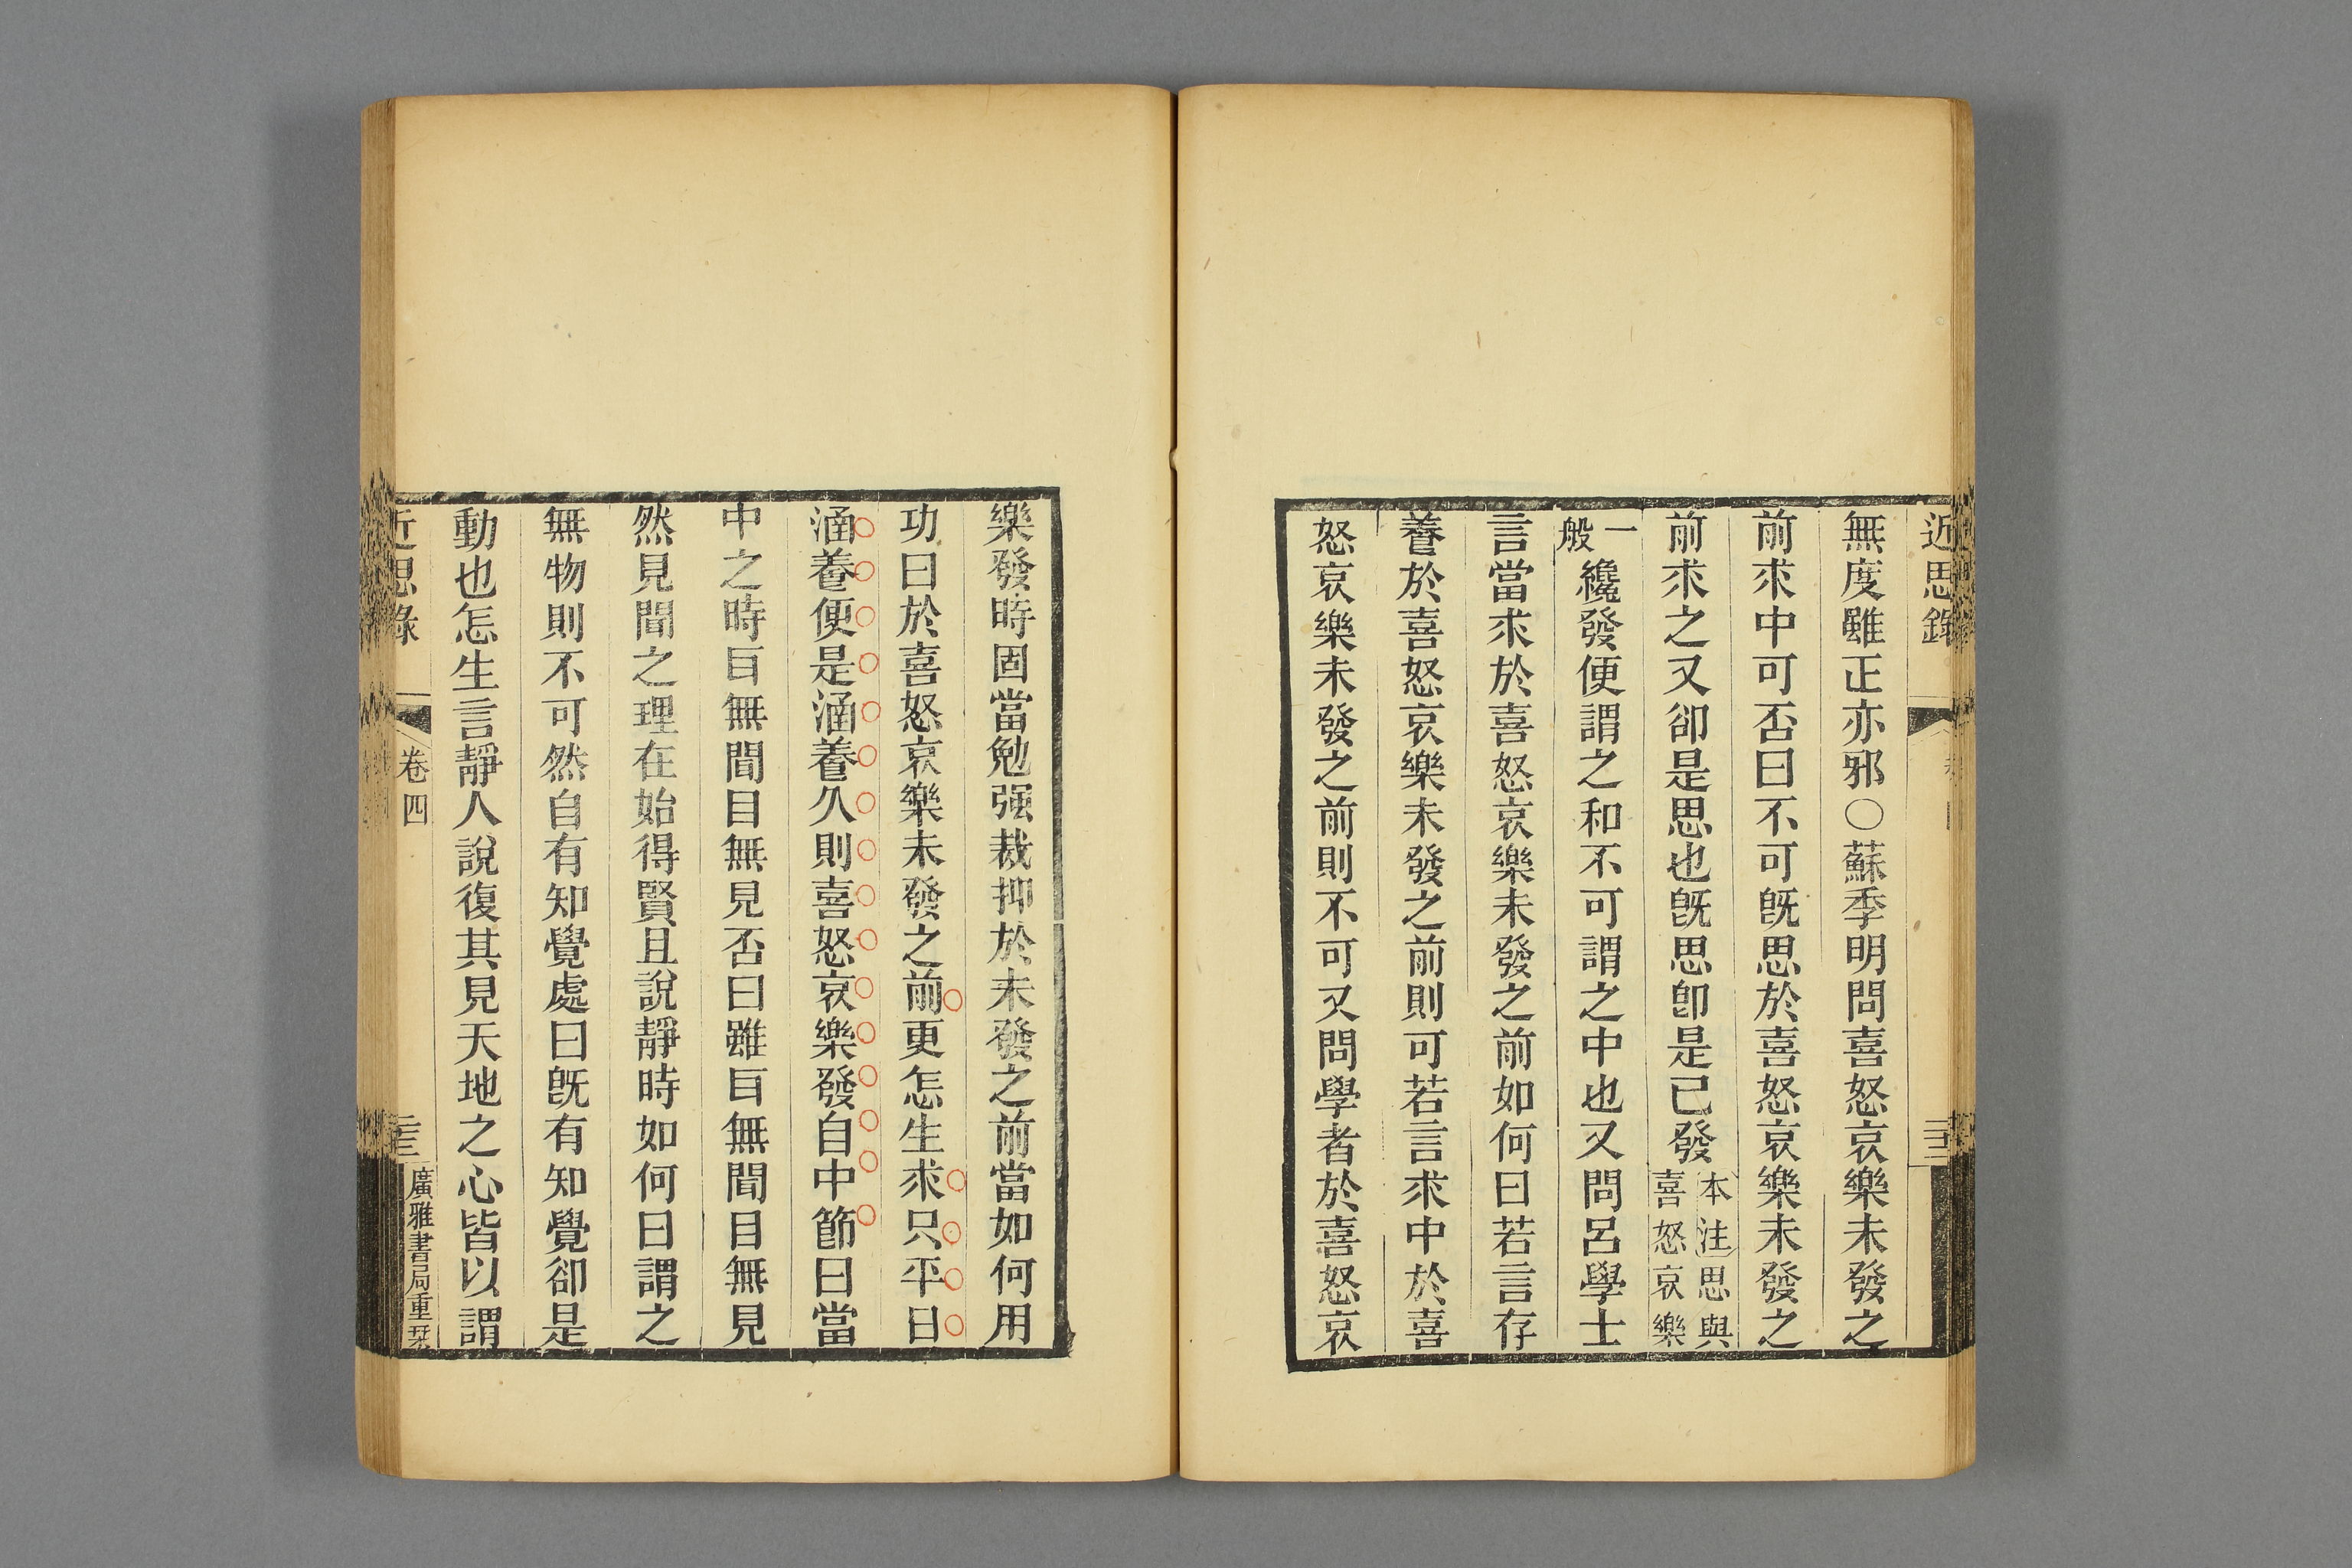 近思錄
無度雖正亦邪○蘇季明問喜怒哀樂未發之
前求中可否曰不可旣思於喜怒哀樂未發之
前求之又卻是思也旣思卽是已發本注思與喜怒哀樂
一般纔發便謂之和不可謂之中也又問呂學士
言當求於喜怒哀樂未發之前如何曰若言存
養於喜怒哀樂未發之前則可若言求中於喜
怒哀樂未發之前則不可又問學者於喜怒哀
樂發時固當勉强裁抑於未發之前當如何用
功曰於喜怒哀樂未發之前更怎生求只平日
涵養便是涵養久則喜怒哀樂發自中節曰當
中之時耳無聞目無見否曰雖耳無聞目無見
然見聞之理在始得賢且說靜時如何曰謂之
無物則不可然自有知覺處曰旣有知覺卻是
動也怎生言靜人說復其見天地之心皆以謂
近思錄 卷四 廣雅書局重栞